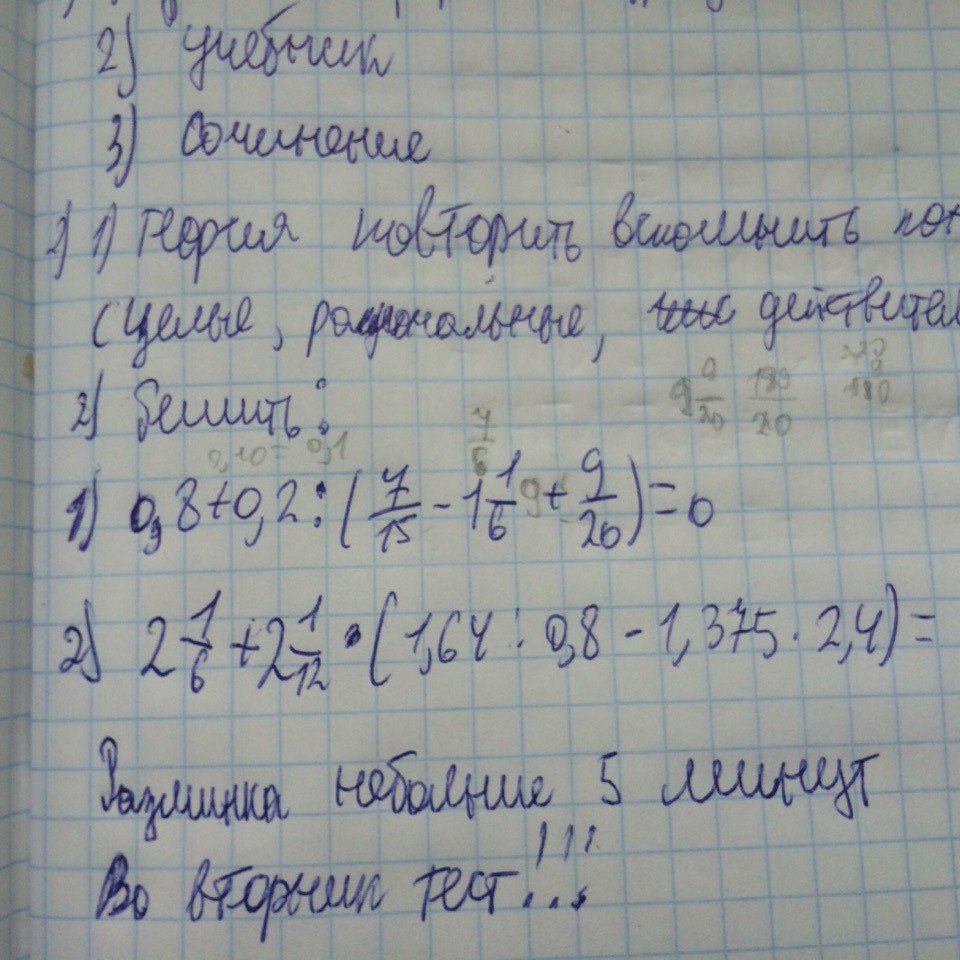 2) учебник
3) Сочинение
2) 1) Теория повторить вспомнить
(целые, рациональные, действител
2) Решить:
9 9/20 189/20 180
0,10= 0,1
7/6
1) 0,8+0,2:(7/15 - 1 1/6 + 9/20)=0
2) 2 1/6 + 2 1/12 · (1,64 : 0,8 - 1,375 · 2,4)=
Разминка небольше 5 минут
Во вторник тест!!!